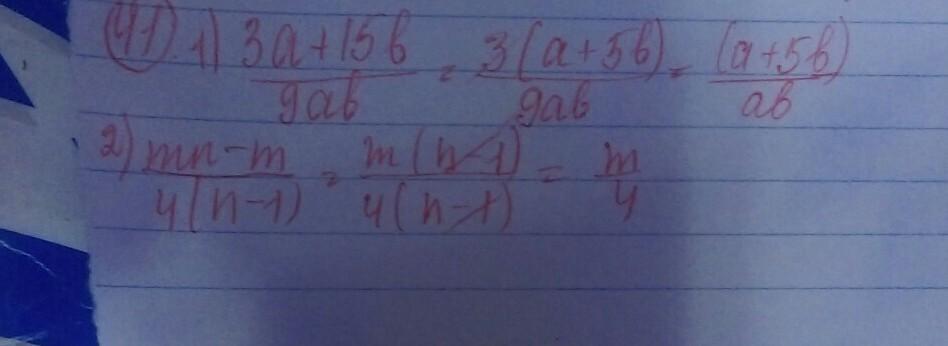 41. 1) 3a+15b / 9ab = 3(a+5b) / 9ab = (a+5b) / ab
2) mn-m / 4(n-1) = m(n-1) / 4(n-1) = m / 4